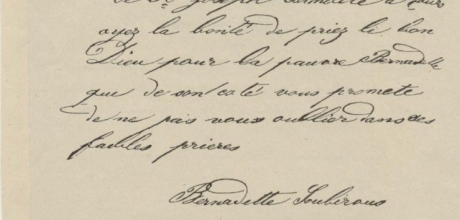 de St Joseph
ayez la bonté de priez le bon
Dieu pour la pauvre Bernadette
que de son coté vous promete
de ne pas vous oublier dans ces
faibles prieres
Bernadette Soubirous